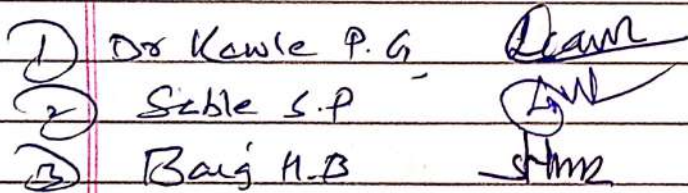 1 Dr Kawle P. G
2 Sable S.P
3 Baig H.B